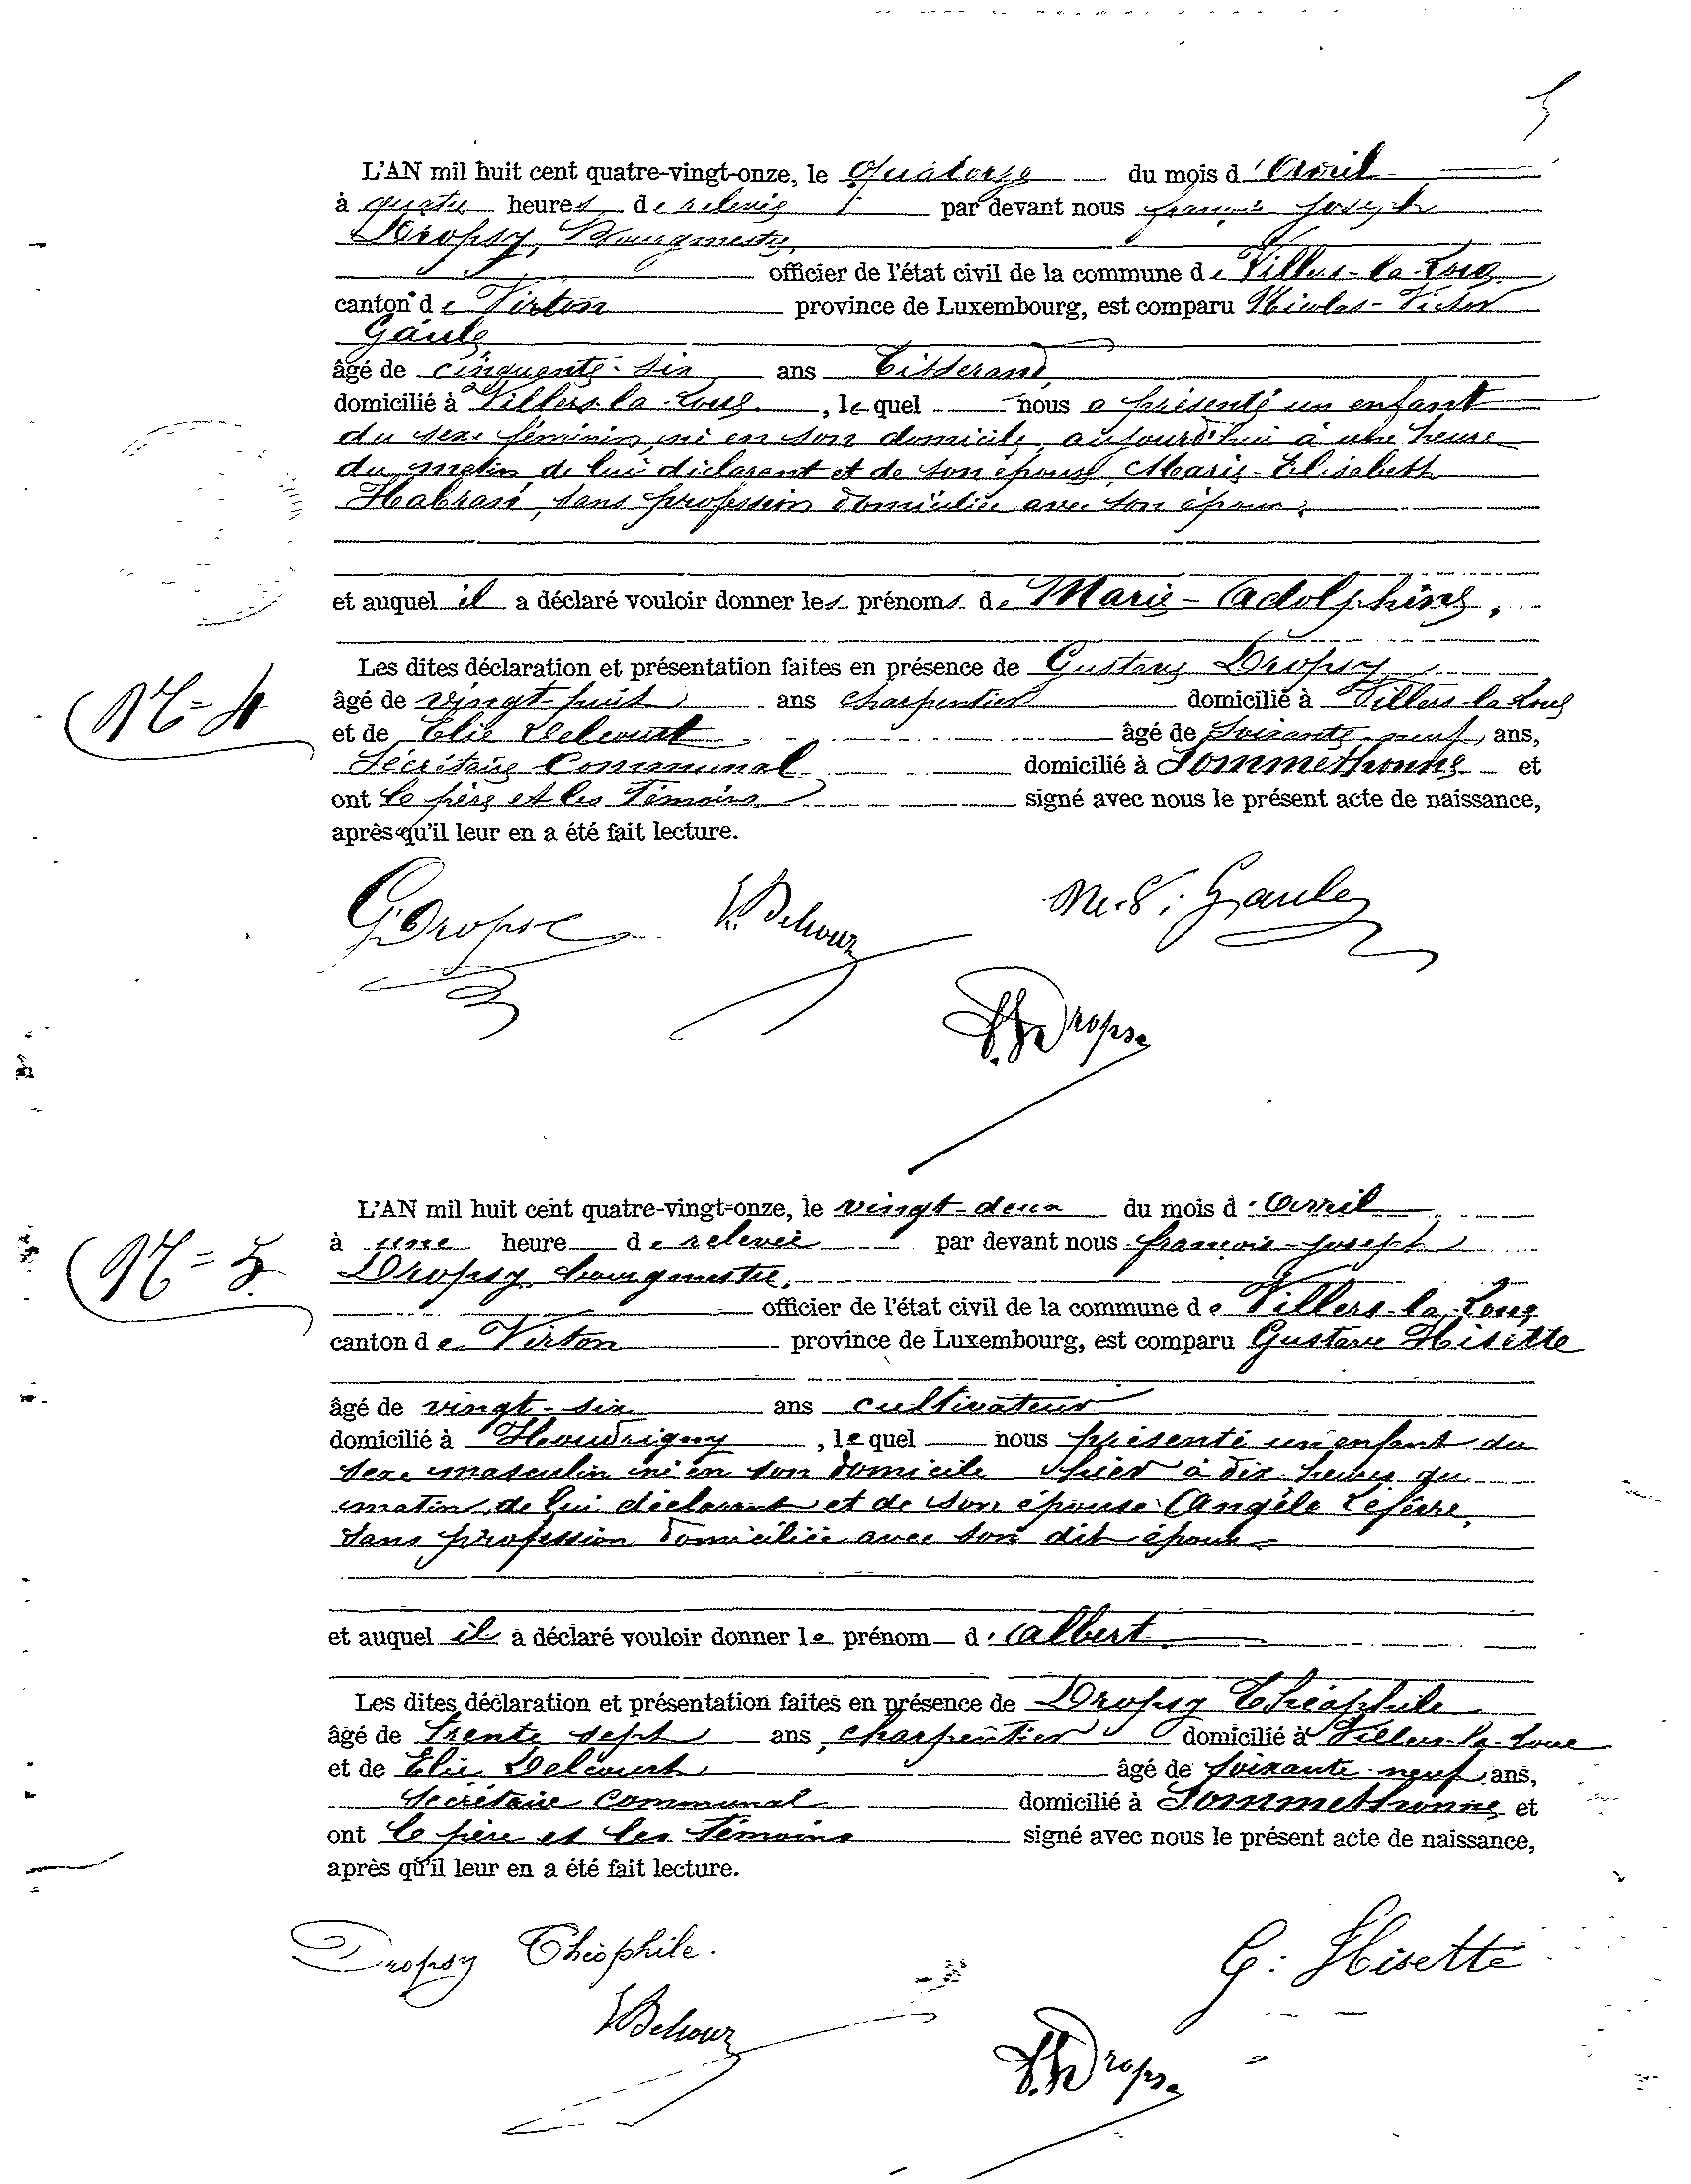 5
L'AN mil huit cent quatre-vingt-onze, le Quatorze du mois d'Avril
à quatre heures de relevée par devant nous françois Joseph
Dropsy, Bourgmestre,
officier de l'état civil de la commune de Villers-la-Loue
canton de Virton province de Luxembourg, est comparu Nicolas-Victor
Gaule
âgé de cinquante-six ans Tisserand,
domicilié à Villers-la-Loue, lequel nous a présenté un enfant
du sexe féminin, né en son domicile, aujourd'hui à une heure
du matin, de lui déclarant et de son épouse, Marie-Elisabeth
Habran, sans profession domiciliée avec son époux.
et auquel il a déclaré vouloir donner les prénoms de Marie-Adolphine,
Les dites déclaration et présentation faites en présence de Gustave Dropsy
N°=4
âgé de vingt-huit ans charpentier domicilié à Villers-la-Loue
et de Elie Delcourt âgé de soixante-neuf, ans,
Sécrétaire Communal domicilié à Sommethonne et
ont le père et les témoins signé avec nous le présent acte de naissance,
après qu'il leur en a été fait lecture.
G. Dropsy E. Delcour N.-V. Gaule
F. J. Dropsy
L'AN mil huit cent quatre-vingt-onze, le vingt-deux du mois d'Avril
à une heure de relevée par devant nous françois-Joseph
N°=5.
Dropsy bourgmestre,
officier de l'état civil de la commune de Villers-la-Loue
canton de Virton province de Luxembourg, est comparu Gustave Hisette
âgé de vingt-six ans cultivateur
domicilié à Houdrigny, lequel nous présenté un enfant du
sexe masculin né en son domicile hier à dix heures du
matin, de lui déclarant et de son épouse Angèle Lefèvre,
sans profession domiciliée avec son dit époux.
et auquel il a déclaré vouloir donner le prénom d'Albert.
Les dites déclaration et présentation faites en présence de Dropsy Théophile
âgé de trente sept ans, charpentier domicilié à Villers-la-Loue
et de Elie Delcourt âgé de soixante-neuf ans,
Secrétaire Communal domicilié à Sommethonne et
ont le père et les témoins signé avec nous le présent acte de naissance,
après qu'il leur en a été fait lecture.
Dropsy Théophile. G: Hisette
E. Delcour
F. J. Dropsy